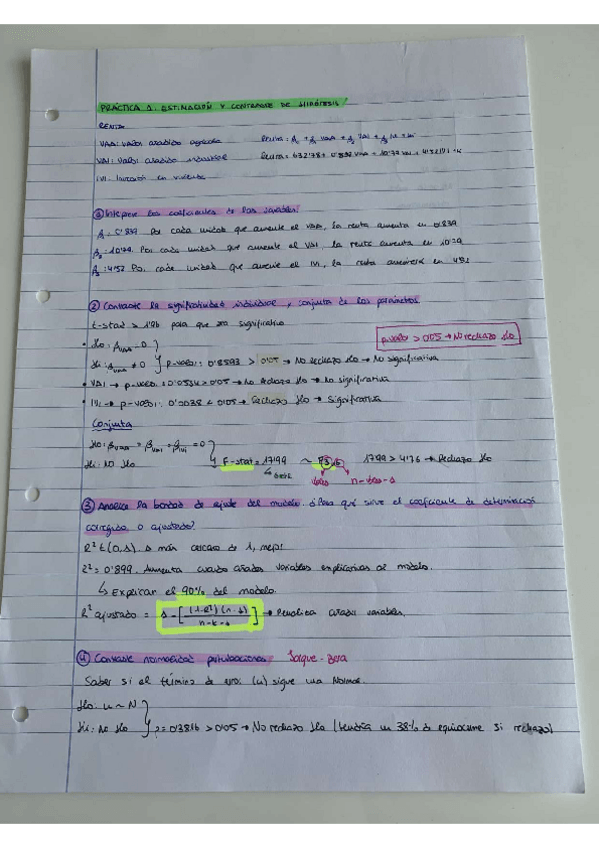 PRÁCTICA 1: ESTIMACIÓN Y CONTRASTE DE HIPÓTESIS
RENTA
VAA: Valor añadido agrícola Renta = β₁ + β₂ VAA + β₃ VAI + β₄ IVI + u
VAI: Valor añadido industrial Renta = 632'78 + 0'839 VAA + 10'79 VAI + 4'52 IVI + u
IVI: Inversión en vivienda
① Interprete los coeficientes de las variables.
β: 0'839 Por cada unidad que aumente el VAA, la renta aumenta en 0'839
β₂: 10'79 Por cada unidad que aumente el VAI, la renta aumenta en 10'79
β₃: 4'52 Por cada unidad que aumente el IVI, la renta aumentará en 4'52
② Contraste la significatividad individual y conjunta de los parámetros
t-stat > 1'96 para que sea significativo
p-valor > 0'05 → No rechazo Ho
• Ho: βVAA = 0
H1: βVAA ≠ 0 } p-valor: 0'8593 > 0'05 → No rechazo Ho → No significativa
• VAI → p-valor: > 0'05 → No rechazo Ho → No significativa
• IVI → p-valor: 0'0038 < 0'05 → Rechazo Ho → Significativa
Conjunta
Ho: βVAA = βVAI = βIVI = 0
H1: NO Ho } F-stat = 17'99 ~ F3,15 17'99 > 4'76 → Rechazo Ho
n-k-1
③ Analice la bondad de ajuste del modelo. ¿Para qué sirve el coeficiente de determinación
corregido o ajustado?
R² t (0,1). A más cercano de 1, mejor
R² = 0'899. Aumenta cuando añades variables explicativas al modelo.
↳ Explicar el 90% del modelo.
R² ajustado = 1 - [(1-R²)(n-1) / n-k-1] → Penaliza añadir variables.
④ Contraste normalidad perturbaciones Jarque-Bera
Saber si el término de error (u) sigue una Normal.
Ho: u ~ N
H1: No Ho } p = 0'3816 > 0'05 → No rechazo Ho (tendría un 38% de equivocarme si rechazo)